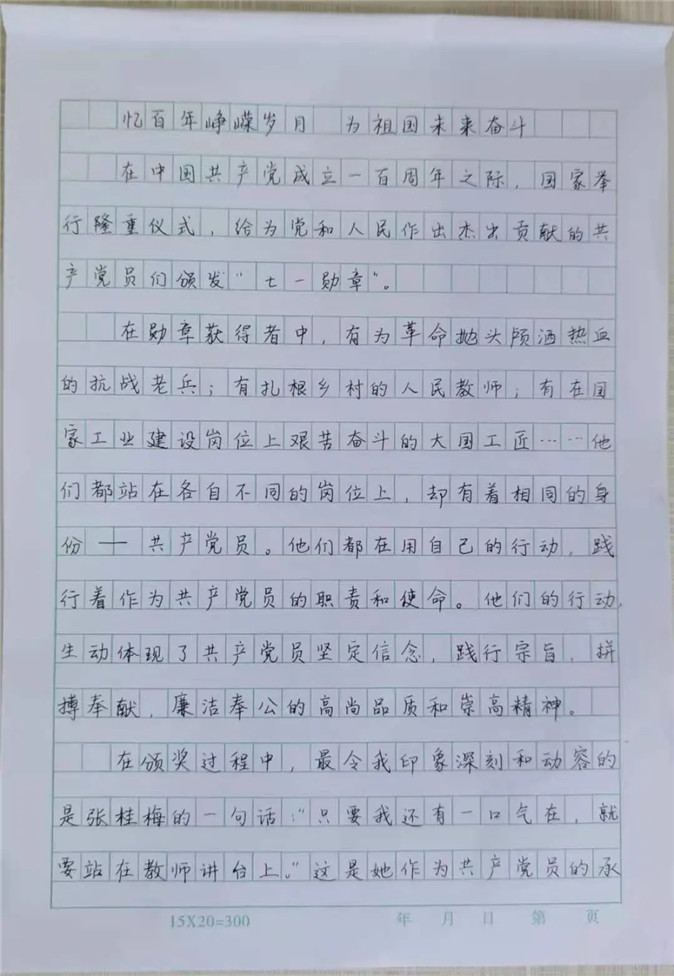 忆百年峥嵘岁月 为祖国未来奋斗
在中国共产党成立一百周年之际，国家举
行隆重仪式，给为党和人民作出杰出贡献的共
产党员们颁发“七一勋章”。
在勋章获得者中，有为革命抛头颅洒热血
的抗战老兵；有扎根乡村的人民教师；有在国
家工业建设岗位上艰苦奋斗的大国工匠……他
们都站在各自不同的岗位上，却有着相同的身
份——共产党员。他们都在用自己的行动，践
行着作为共产党员的职责和使命。他们的行动，
生动体现了共产党员坚定信念，践行宗旨，拼
搏奉献，廉洁奉公的高尚品质和崇高精神。
在颁奖过程中，最令我印象深刻和动容的
是张桂梅的一句话：“只要我还有一口气在，就
要站在教师讲台上。”这是她作为共产党员的承
15X20=300 年 月 日 第 页